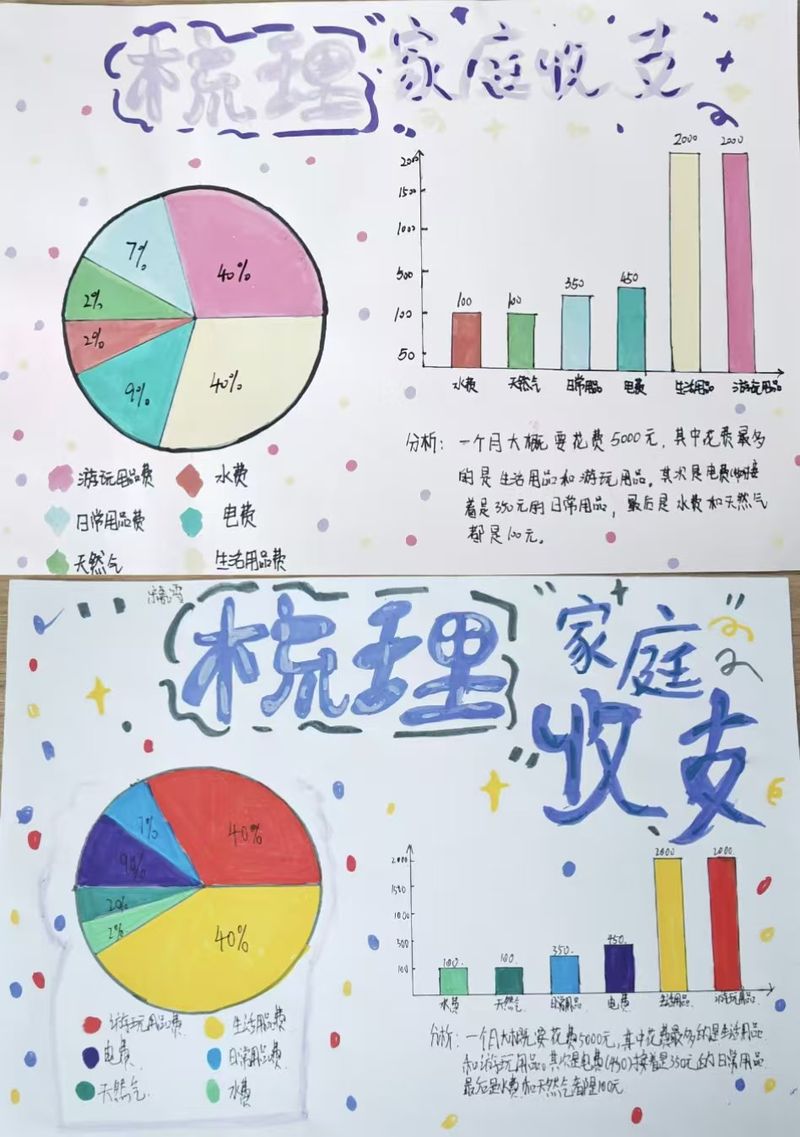 梳理“家庭收支”
40%
7%
2%
2%
9%
40%
游玩用品费 水费
日常用品费 电费
天然气 生活用品费
2000 2000
2000
1500
1000
500
450
350
100 100
100
50
水费 天然气 日常用品 电费 生活用品 游玩用品
分析：一个月大概要花费5000元，其中花费最多
的是生活用品和游玩用品。其次是电费，接
着是350元的日常用品，最后是水费和天然气
都是100元。
梳理“家庭
收支”
40%
7%
9%
2%
2%
40%
游玩用品费 生活用品费
电费 日常用品费
天然气 水费
2000 2000
2000
1500
1000
500
450
350
100 100
100
水费 天然气 日常用品 电费 生活用品 游玩用品
分析：一个月大概要花费5000元，其中花费最多的是生活用品
和游玩用品。其次是电费(450)接着是350元的日常用品
最后是水费和天然气都是100元